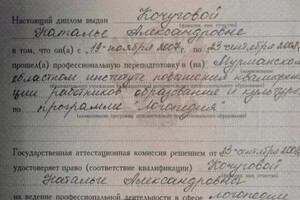 Настоящий диплом выдан Кочуговой
(фамилия, имя, отчество)
Наталье Александровне
в том, что он(а) с „19“ ноября 2007 г. по „23“ сентября 2008
прошел(а) профессиональную переподготовку в (на) Мурманском
областном институте повышения квалифика-
ции работников образования и культуры
по программе "Логопедия"
Государственная аттестационная комиссия решением от 23 сентября
удостоверяет право (соответствие квалификации) Кочуговой
(фамилия, имя, отчество)
Натальи Александровны
на ведение профессиональной деятельности в сфере логопедии